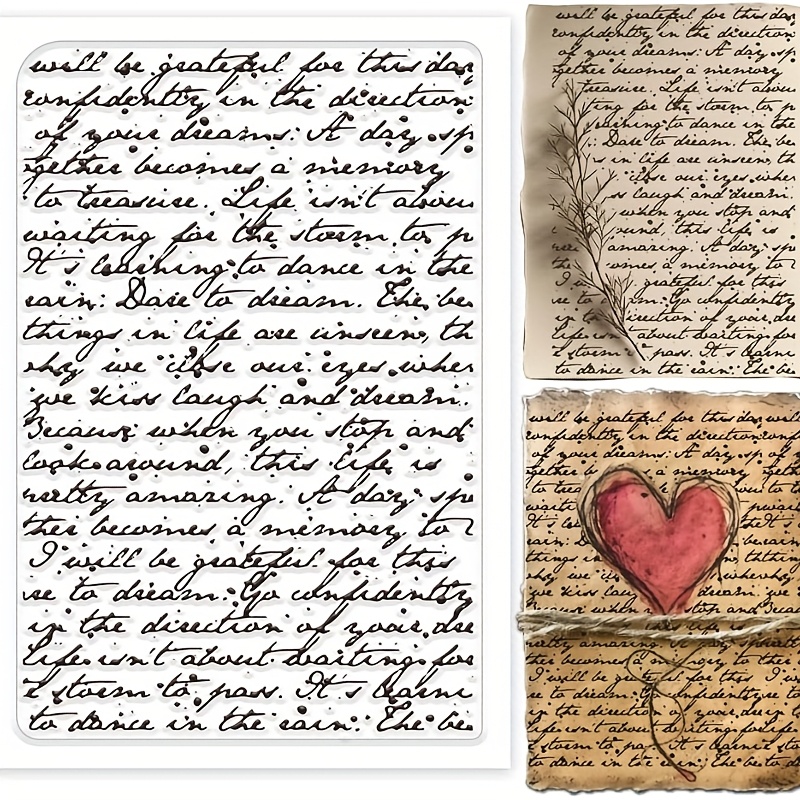 will be grateful for this day
confidently in the direction
of your dreams. A day sp
gether becomes a memory
to treasure. Life isn't about
waiting for the storm to p
It's learning to dance in the
rain. Dare to dream. The be
things in life are unseen, th
why we close our eyes when
we kiss laugh and dream.
Because when you stop and
look around, this life is
pretty amazing. A day sp
ther becomes a memory to
I will be grateful for this
se to dream. Go confidently
in the direction of your dre
Life isn't about waiting for
e storm to pass. It's learni
to dance in the rain. The be
will be grateful for this day
confidently in the direction
of your dreams. A day sp
gether becomes a memory
treasure. Life isn't abou
ting for the storm to p
learning to dance in the
Dare to dream. The be
s in life are unseen, th
close our eyes when
ss laugh and dream.
when you stop and
ound, this life is
amazing. A day sp
omes a memory to
grateful for this
m. Go confidently
irection of your dre
Life isn't about waiting for
e storm pass. It's learni
to dance in the rain. The be
will be grateful for this day will be
confidently in the direction
of your dreams. A day sp
a memory
things in
why we
we kiss laug
Because when stop and
pretty amazing. A day sp
ther becomes a memory to
I will be grateful for this I will
se to dream. Go confidently
in the direction of your
Life isn't about waiting for
e storm to pa It's learni
to dance in the rain. The be